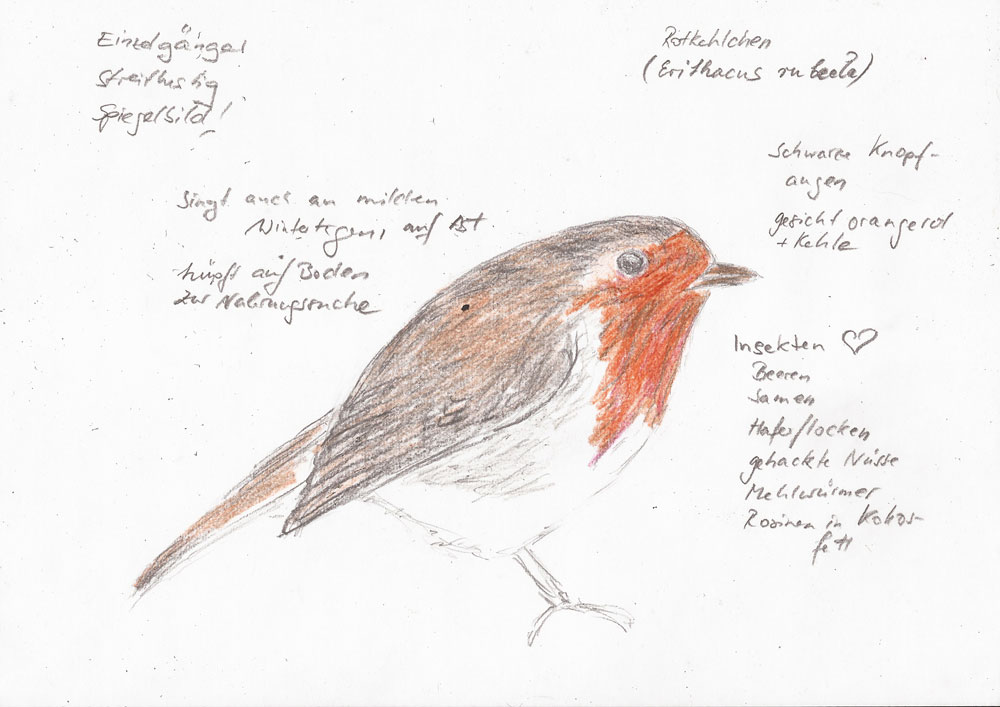 Einzelgänger
streitlustig
Spiegelbild!
Rotkehlchen
(Erithacus rubecula)
schwarze Knopf-
augen
gesicht orangerot
+ Kehle
singt auch an milden
Wintertagen, auf Ast
hüpft auf Boden
zur Nahrungssuche
Insekten ♡
Beeren
Samen
Haferflocken
gehackte Nüsse
Mehlwürmer
Rosinen in Kokos-
fett